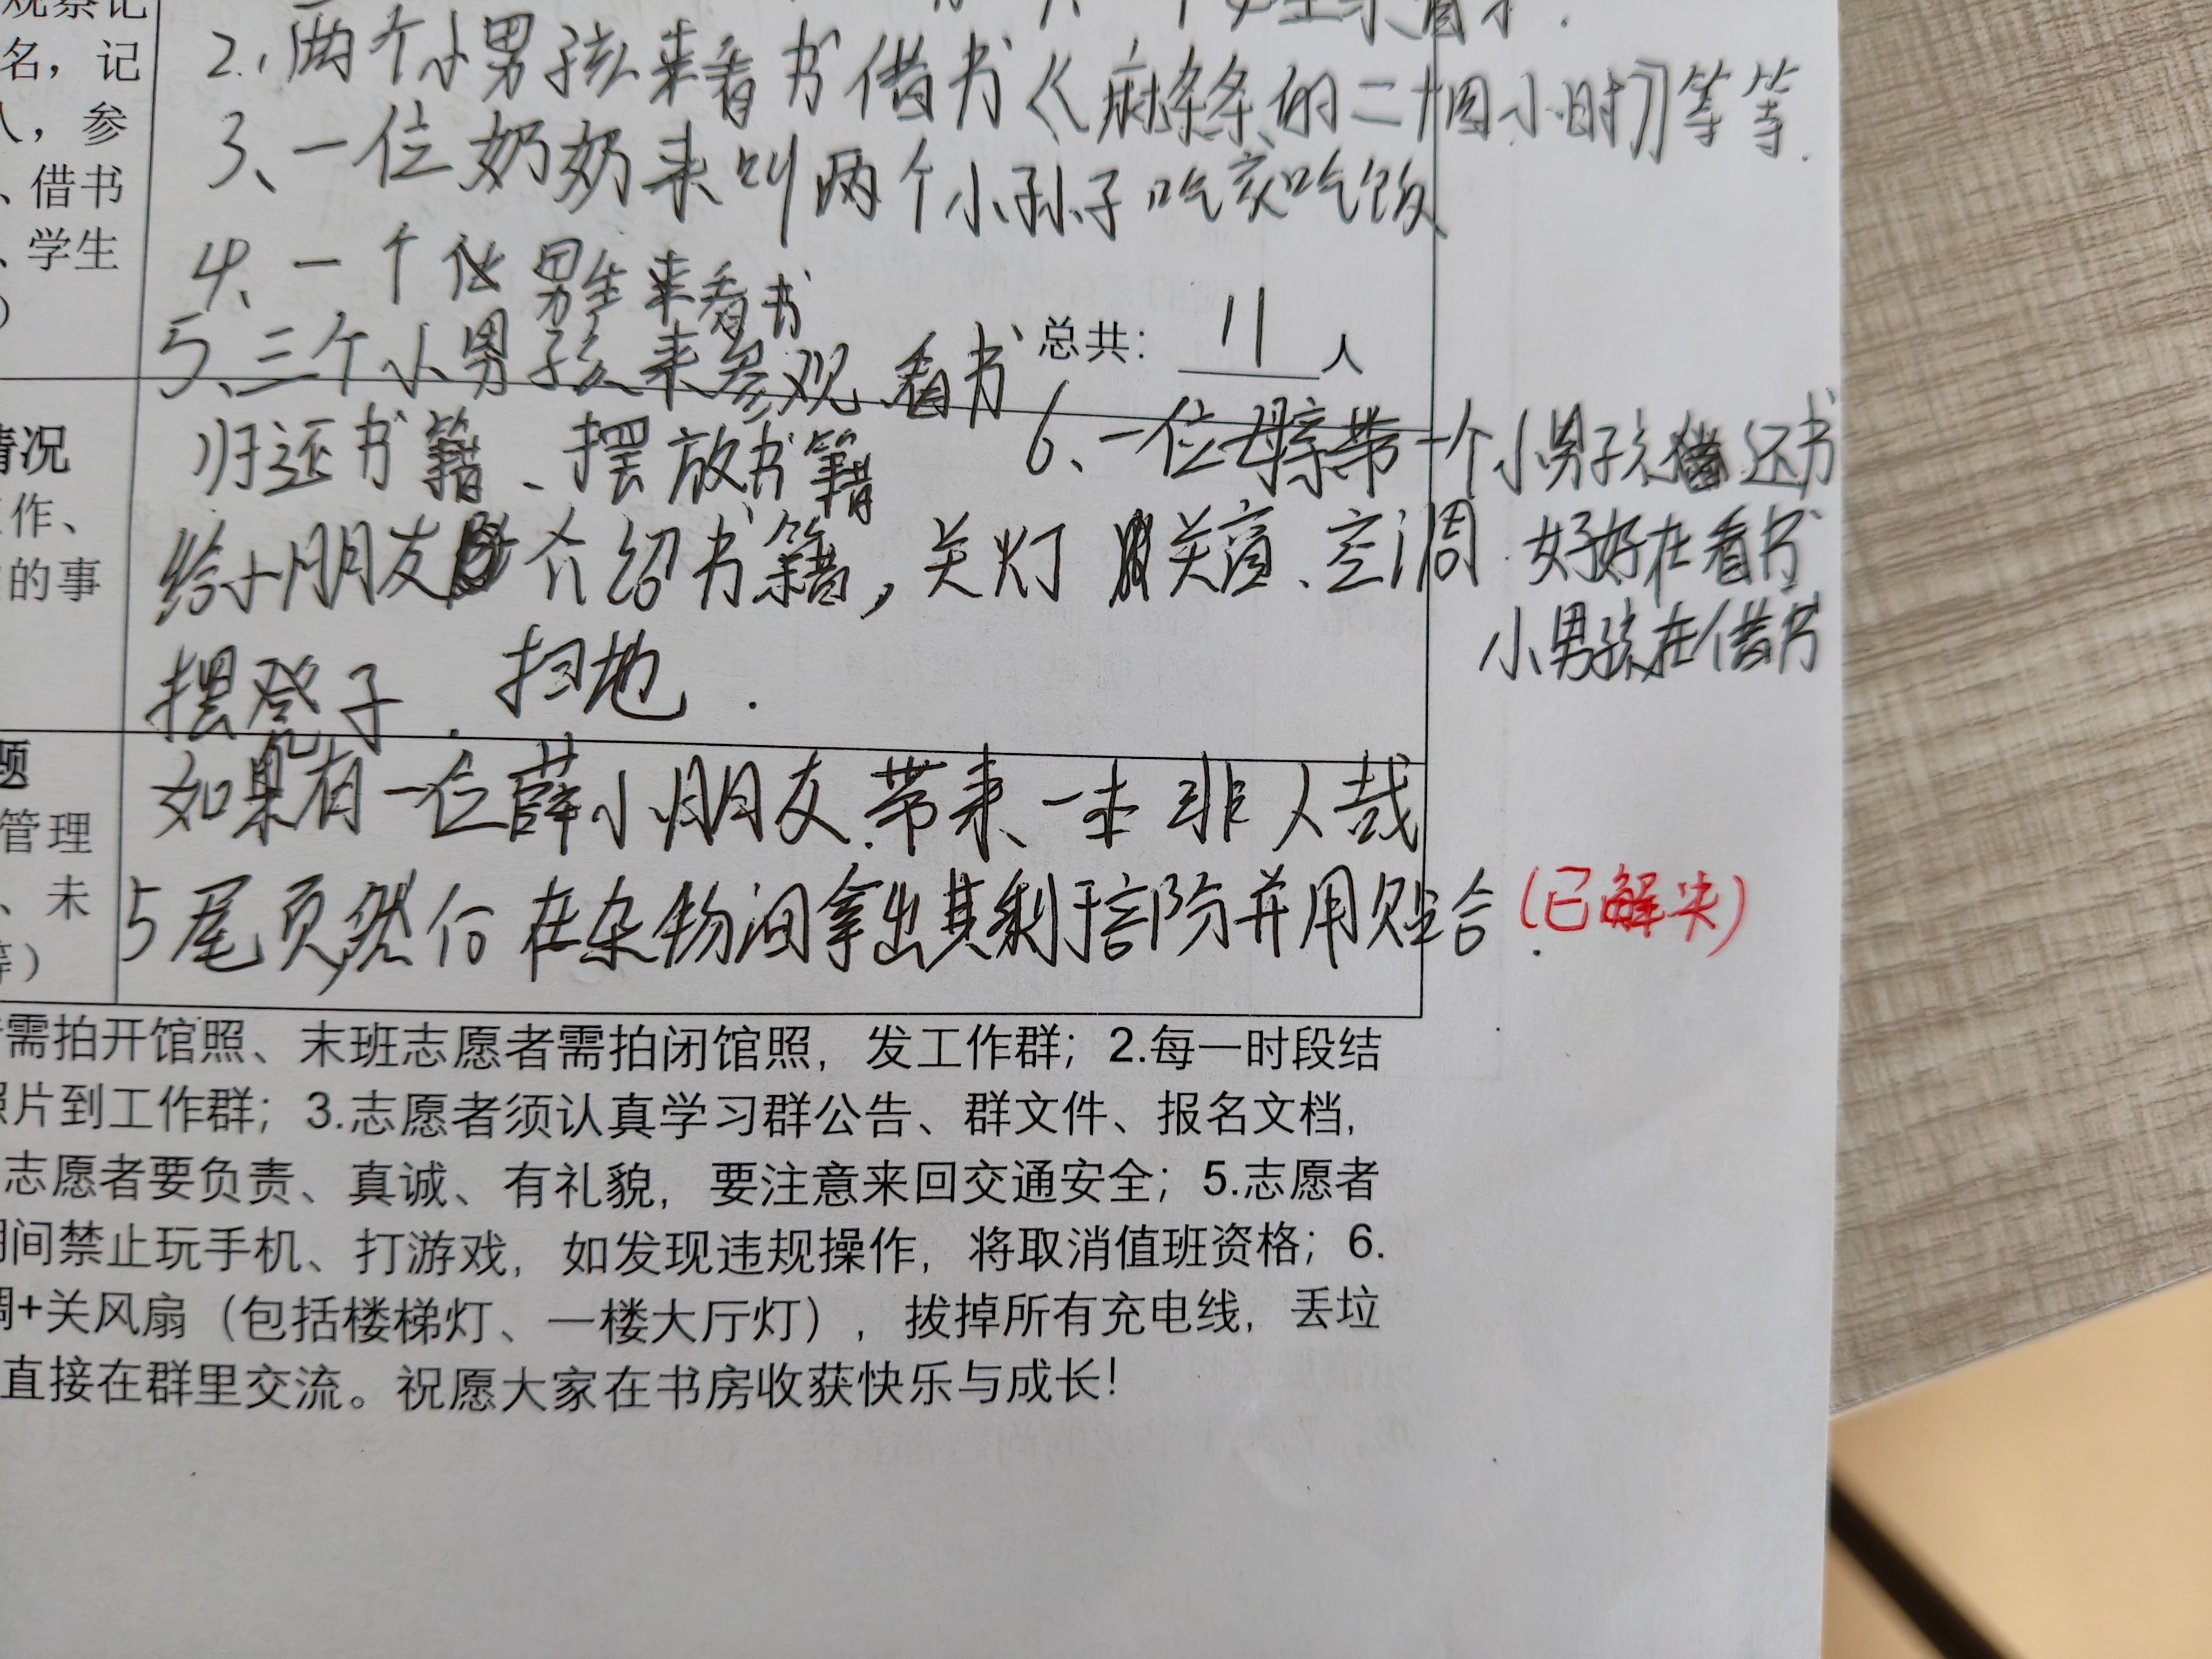 观察记
名，记
2、两个小男孩来看书借书《麻条条的二十四小时》等等.
人，参
3、一位奶奶来叫两个小孙子吃饭
、借书
、学生
4、一个 男生来看书
)
5、三个小男孩来参观、看书
总共: 11 人
6、一位母亲带一个小男孩 还书
情况
归还书籍、摆放书籍
作、
给小朋友 介绍书籍，关灯 关窗、空调.
好好在看书
的事
小男孩在借书
摆凳子、扫地.
题
如果有一位薛小朋友带来一本非人哉
管理
、未
5尾页 在杂物间拿出其剩 并用贴合. (已解决)
等)
需拍开馆照、末班志愿者需拍闭馆照，发工作群；2.每一时段结
照片到工作群；3.志愿者须认真学习群公告、群文件、报名文档，
志愿者要负责、真诚、有礼貌，要注意来回交通安全；5.志愿者
期间禁止玩手机、打游戏，如发现违规操作，将取消值班资格；6.
调+关风扇（包括楼梯灯、一楼大厅灯），拔掉所有充电线，丢垃
直接在群里交流。祝愿大家在书房收获快乐与成长！